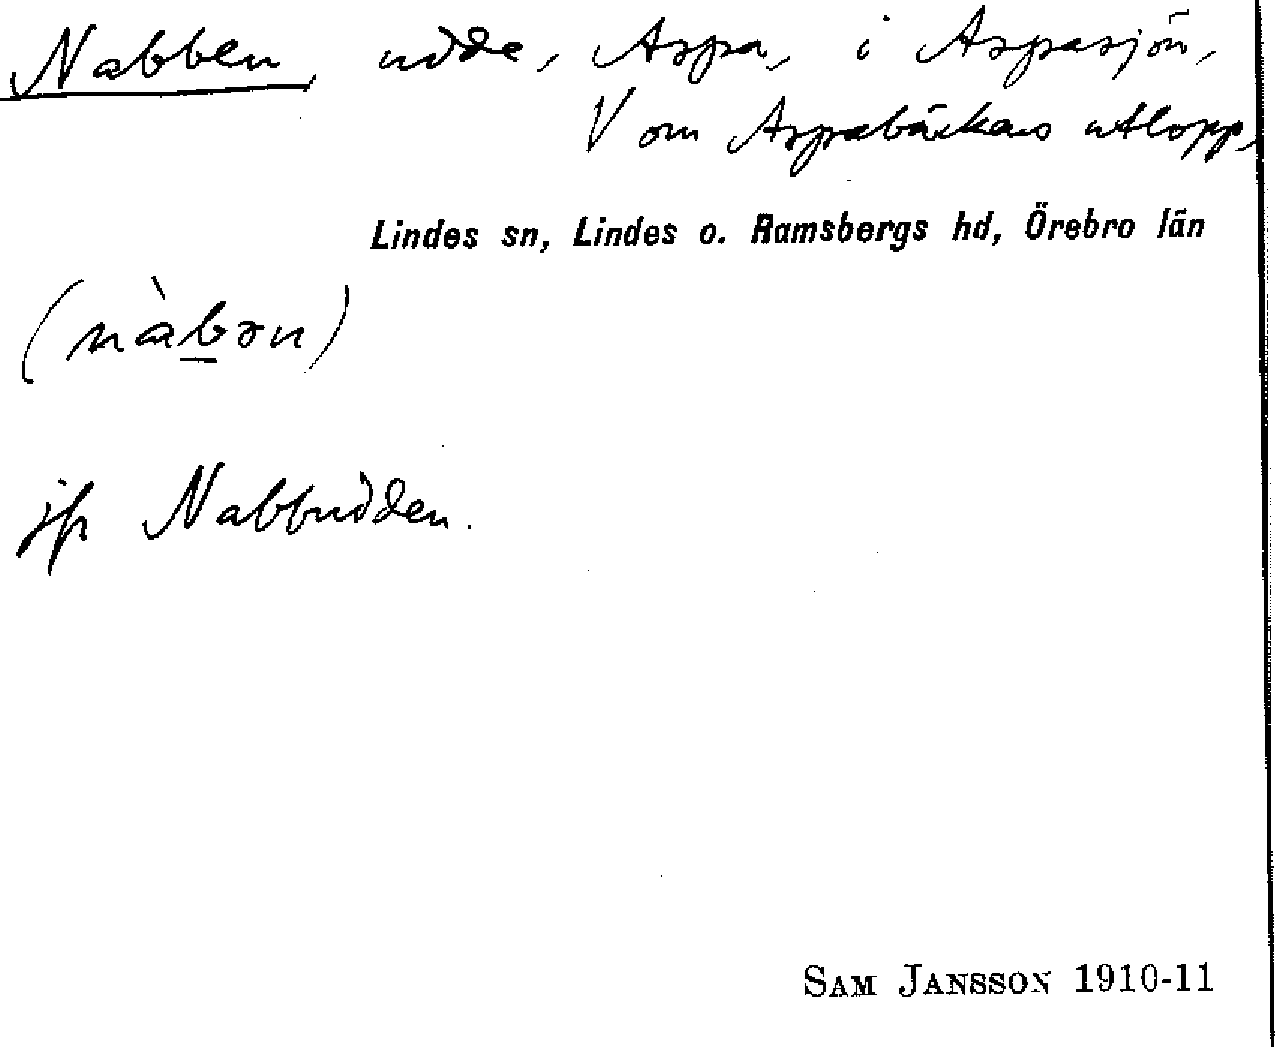 Nabben, udde, Aspa, i Aspasjön,
V om Aspabäckens utlopp,
Lindes sn, Lindes o. Ramsbergs hd, Örebro län
(nàbən)
jfr Nabbudden.
SAM JANSSON 1910-11